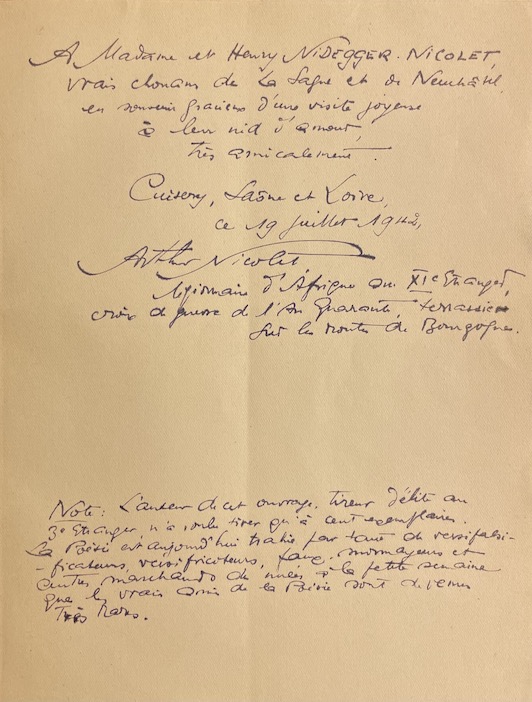 A Madame et Henry NIDEGGER-NICOLET,
vrais chouans de La Sagne et de Neuchâtel
en souvenir gracieux d'une visite joyeuse
à leur nid d'amour,
très amicalement.
Cuisery, Saône et Loire,
ce 19 juillet 1942,
Arthur Nicolet
légionnaire d'Afrique au XIe Etranger,
croix de guerre de l'An Quarante, terrassier
sur les routes de Bourgogne.
Note: L'auteur de cet ouvrage, tireur d'élite au
3e Etranger n'a voulu tirer qu'à cent exemplaires.
La Poésie est aujourd'hui trahie par tant de versifalsi-
-ficateurs, versificoteurs, faux monnayeurs et
autres marchands de à la petite semaine
que les vrais amis de la Poésie sont devenus
Très Rares.